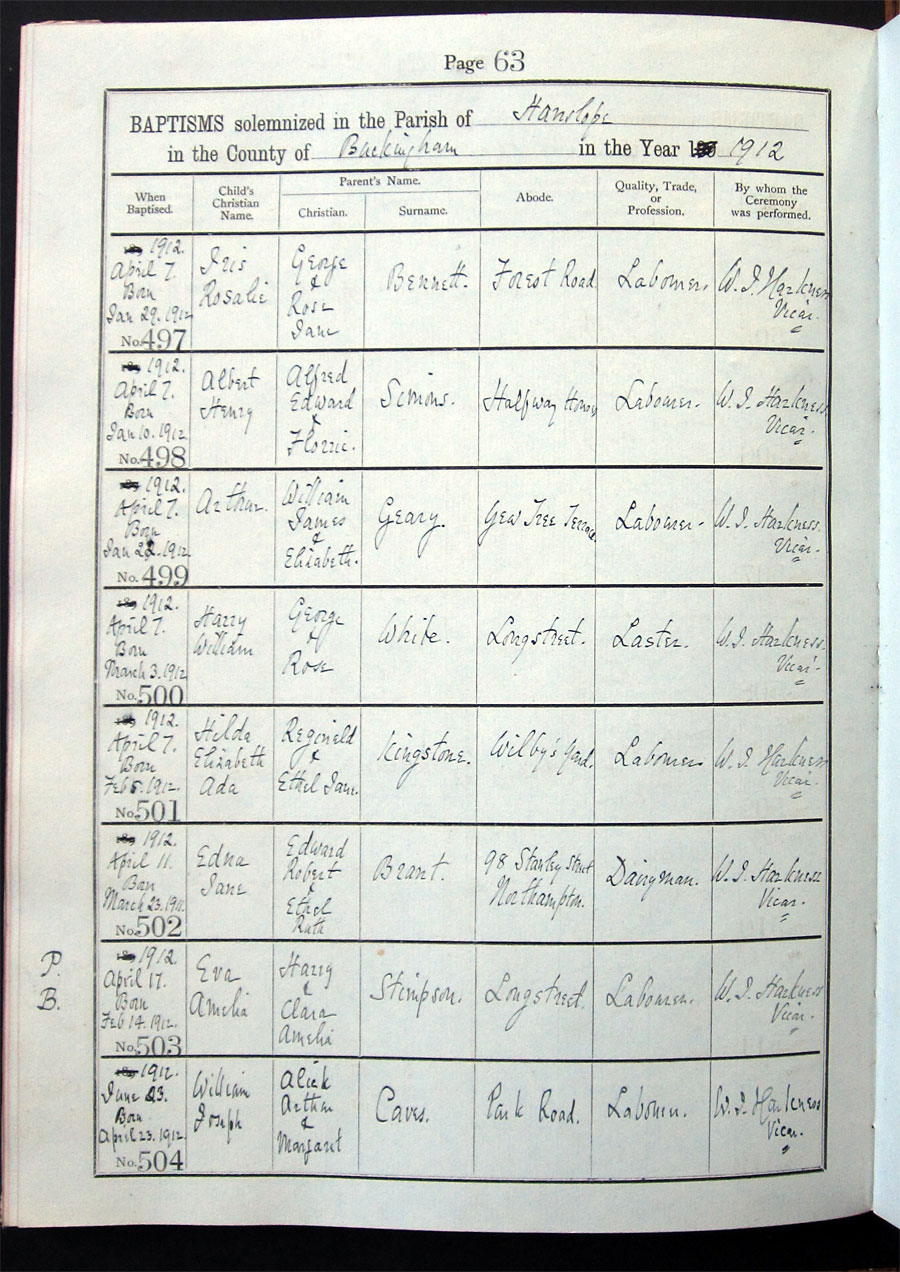 Page 63
BAPTISMS solemnized in the Parish of Hanslope
in the County of Buckingham in the Year 1912
When Baptised.
Child's Christian Name.
Parent's Name.
Christian.
Surname.
Abode.
Quality, Trade, or Profession.
By whom the Ceremony was performed.
1912.
April 7.
Born
Jan 29. 1912
No. 497
Iris
Rosalie
George
&
Rose
Jane
Bennett.
Forest Road
Labourer.
W. J. Harkness
Vicar.
1912.
April 7.
Born
Jan 10. 1912
No. 498
Albert
Henry
Alfred
Edward
&
Florrie.
Simons.
Halfway House
Labourer.
W. J. Harkness
Vicar.
1912.
April 7.
Born
Jan 22. 1912
No. 499
Arthur.
William
James
&
Elisabeth.
Geary.
Yew Tree Terrace
Labourer.
W. J. Harkness.
Vicar.
1912.
April 7.
Born
March 3. 1912
No. 500
Harry
William
George
&
Rose
White.
Longstreet.
Laster.
W. J. Harkness.
Vicar.
1912.
April 7.
Born
Feb 5. 1912.
No. 501
Hilda
Elizabeth
Ada
Reginald
&
Ethel Jane.
Kingstone.
Wilby's Yard.
Labourer.
W. J. Harkness
Vicar.
1912.
April 11.
Born
March 23.
No. 502
Edna
Jane
Edward
Robert
&
Ethel
Ruth
Brant.
98 Stanley Street
Northampton.
Dairyman.
W. J. Harkness
Vicar.
P.
B.
1912.
April 17.
Born
Feb 14. 1912.
No. 503
Eva
Amelia
Harry
&
Clara
Amelia
Stimpson.
Longstreet.
Labourer.
W. J. Harkness
Vicar.
1912.
June 23.
Born
April 23. 1912.
No. 504
William
Joseph
Alick
Arthur
&
Margaret
Caves.
Park Road.
Labourer.
W. J. Harkness
Vicar.